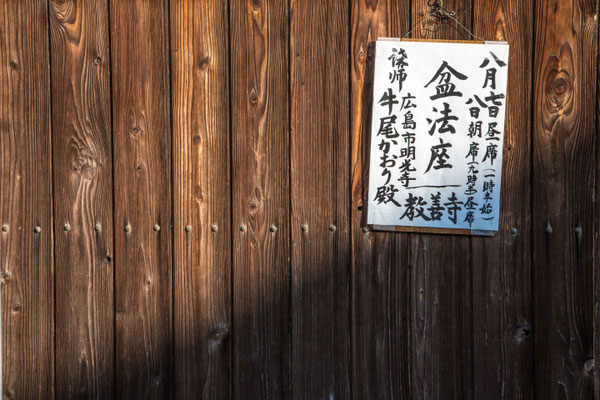 八月七日昼席(一時半始)
八日朝席(九時半)昼席
盆法座
教善寺
講師
広島市明光寺
牛尾かおり殿